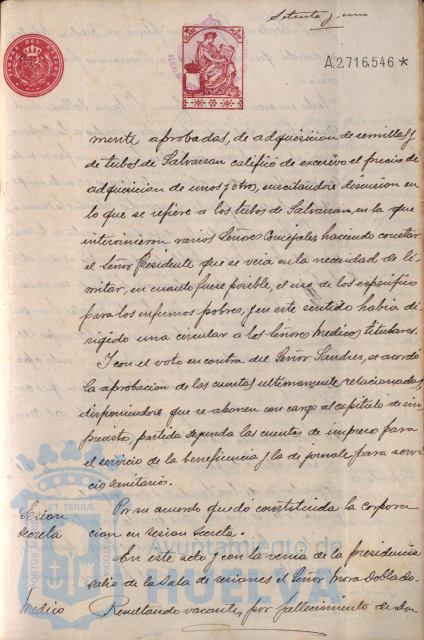 Setenta y uno
A.2.716.546 *
mente aprobadas, de adquisicion de semillas y
de tubos de Salvarsan calificó de excesivo el precio de
adquisicion de unos y otros, suscitandose discusion en
lo que se refiere a los tubos de Salvarsan, en la que
intervinieron varios Señores Concejales, haciendo constar
el Señor Presidente que se veia en la necesidad de li-
mitar, en cuanto fuese posible, el uso de los especificos
para los enfermos pobres, y en este sentido habia di-
rigido una circular a los Señores Medicos titulares.
Y con el voto en contra del Señor Sanchez, se acordó
la aprobacion de las cuentas ultimamente relacionadas,
disponiendose que se abonen con cargo al capitulo de im-
previsto, partida segunda las cuentas de impreso para
el servicio de la beneficencia y la de jornales para servi-
cio sanitarios.
Sesion
secreta
Por su acuerdo quedó constituida la corpora
cion en sesion secreta.
En este acto y con la venia de la presidencia
salio de la Sala de sesiones el Señor Mora Doblado.
Medico
Resultando vacante, por fallecimiento de don
Ayuntamiento de
HUELVA